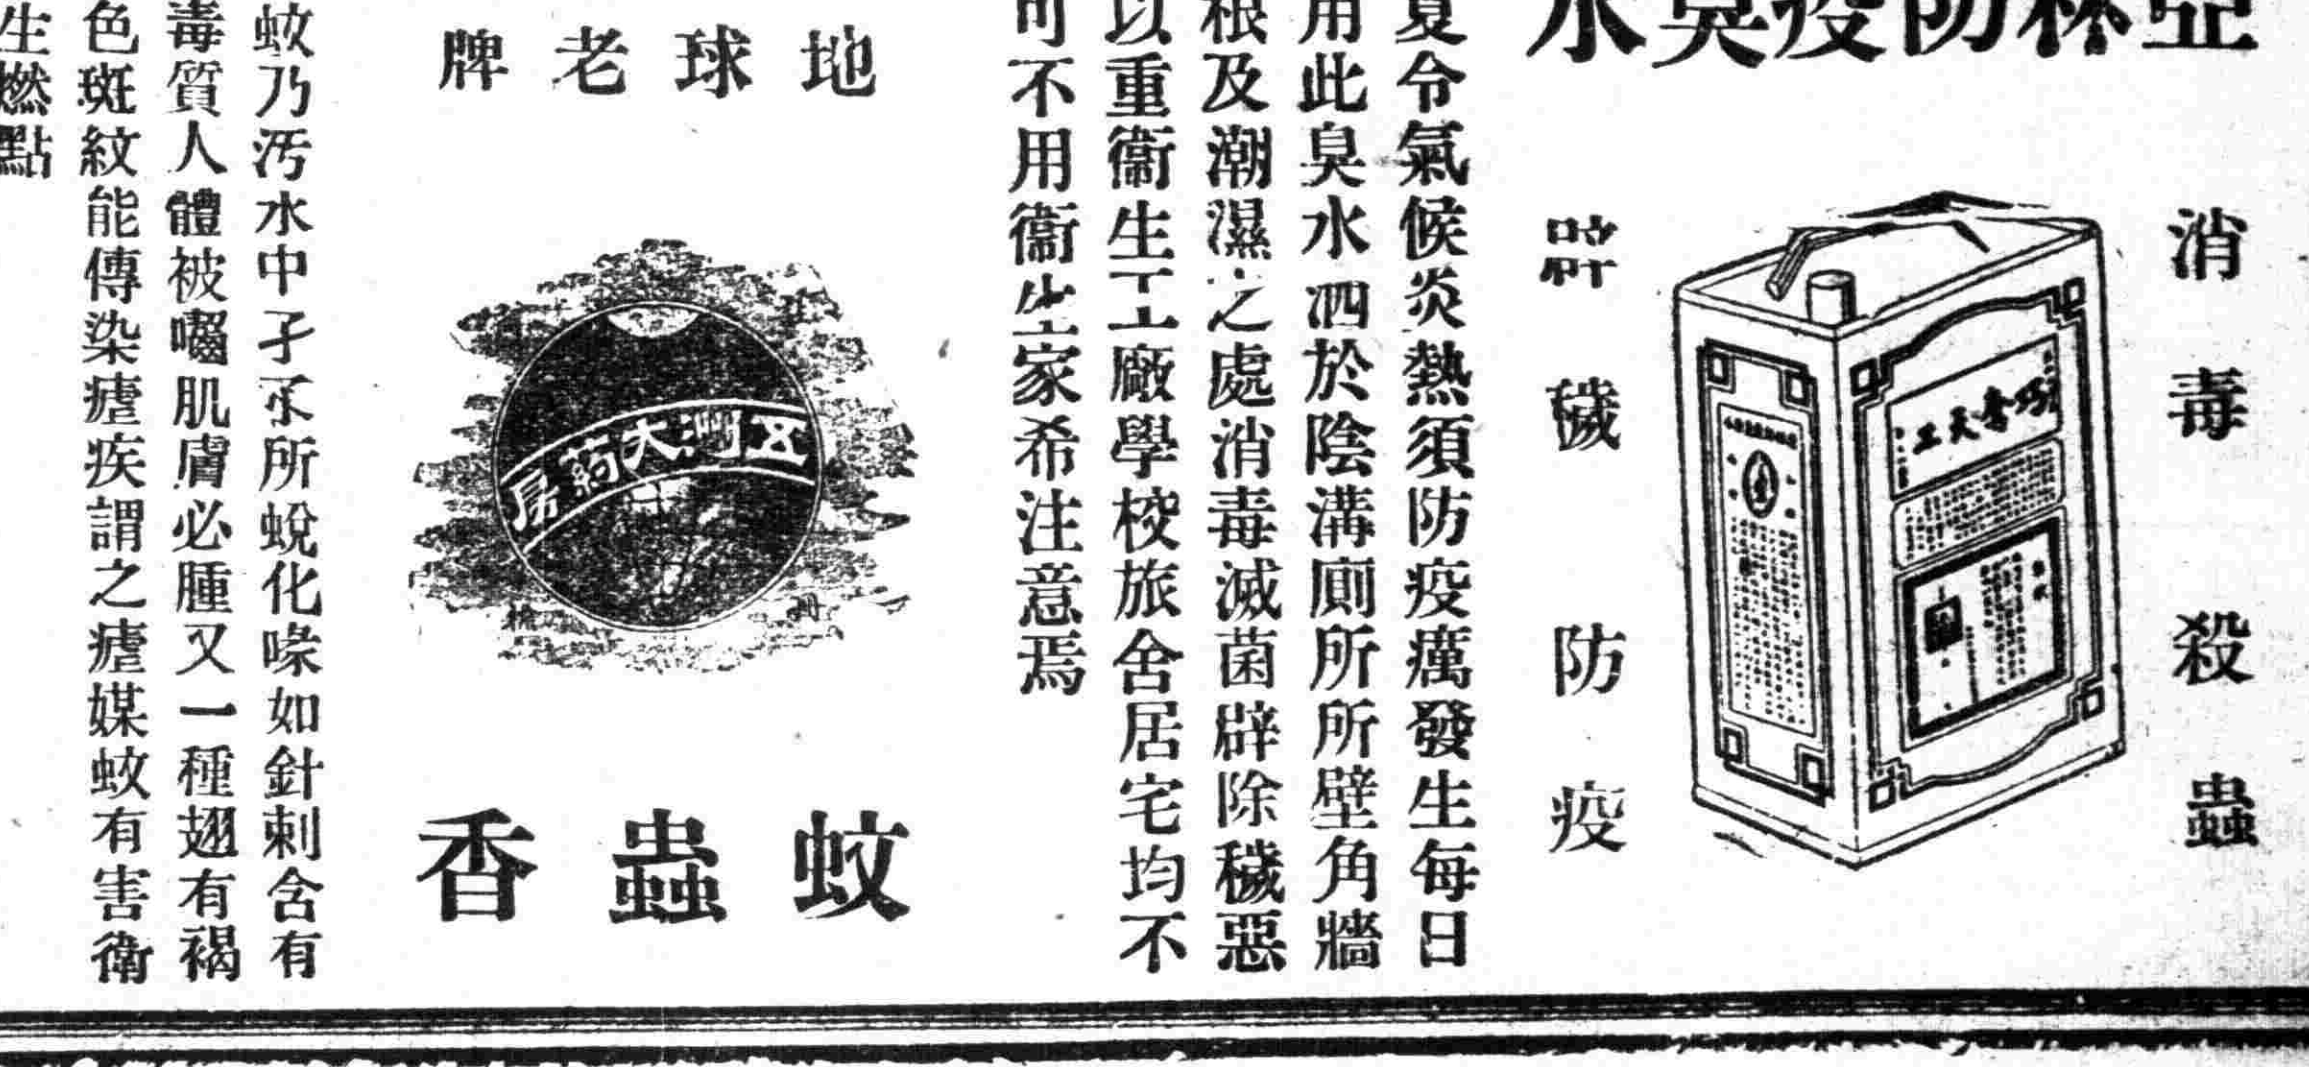 亞林防疫臭水
消毒殺蟲
巧奪天工
辟穢防疫
夏令氣候炎熱須防疫癘發生每日
用此臭水洒於陰溝廁所所壁角牆
根及潮濕之處消毒滅菌辟除穢惡
以重衞生工廠學校旅舍居宅均不
可不用衞生家希注意焉
地球老牌
五洲大葯房
蚊蟲香
蚊乃汚水中孑孓所蛻化喙如針刺含有
毒質人體被囓肌膚必腫又一種翅有褐
色斑紋能傳染瘧疾謂之瘧媒蚊有害衛
生燃點